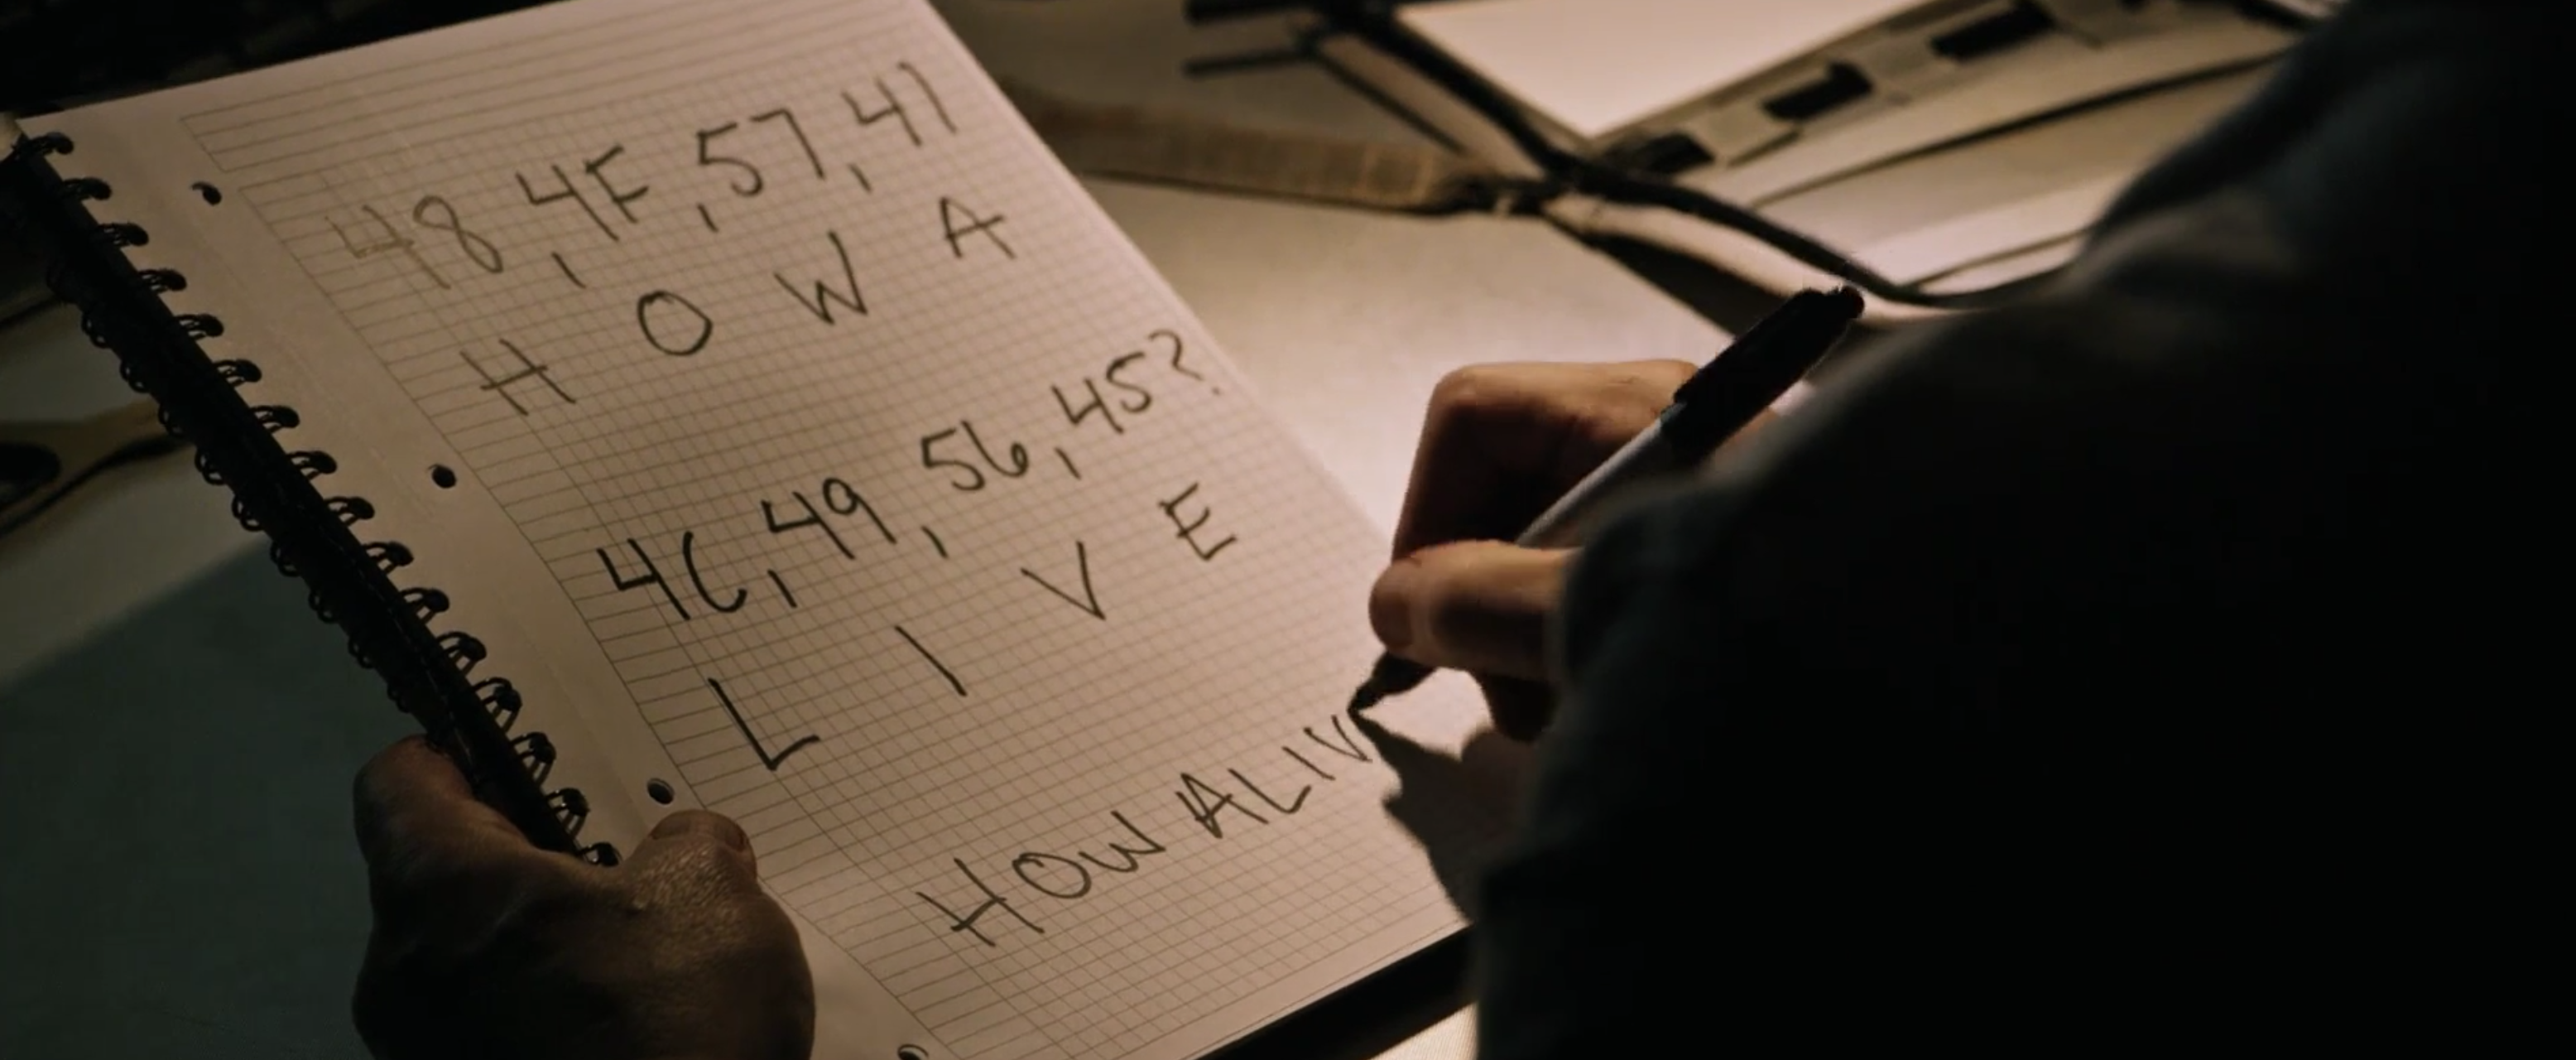 48, 4F, 57, 41
H O W A
4C, 49, 56, 45?
L I V E
HOW ALIV